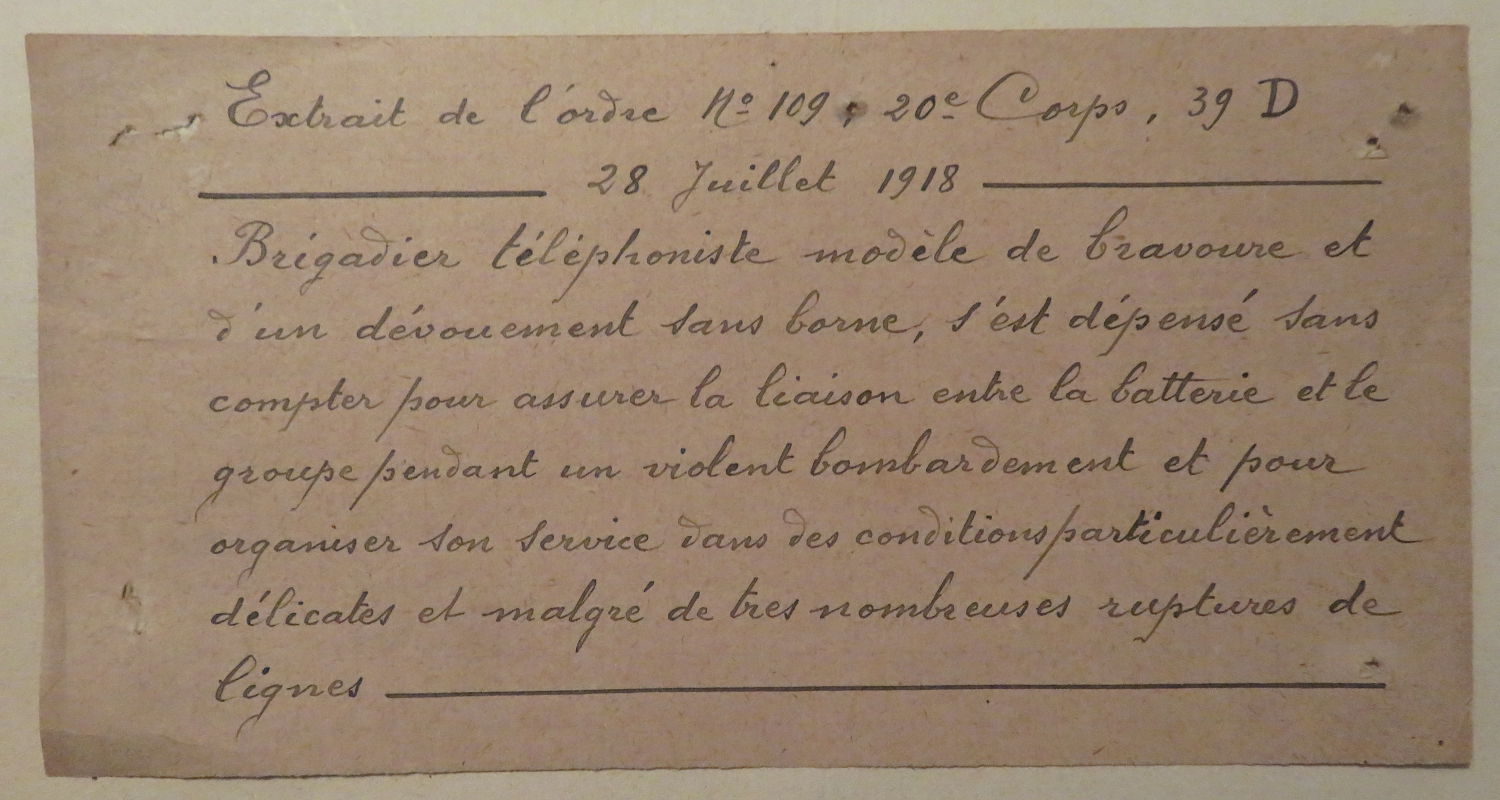 Extrait de l'ordre Nº 109 ; 20e Corps, 39 D
28 Juillet 1918
Brigadier téléphoniste modèle de bravoure et
d'un dévouement sans borne, s'est dépensé sans
compter pour assurer la liaison entre la batterie et le
groupe pendant un violent bombardement et pour
organiser son service dans des conditions particulièrement
délicates et malgré de tres nombreuses ruptures de
lignes